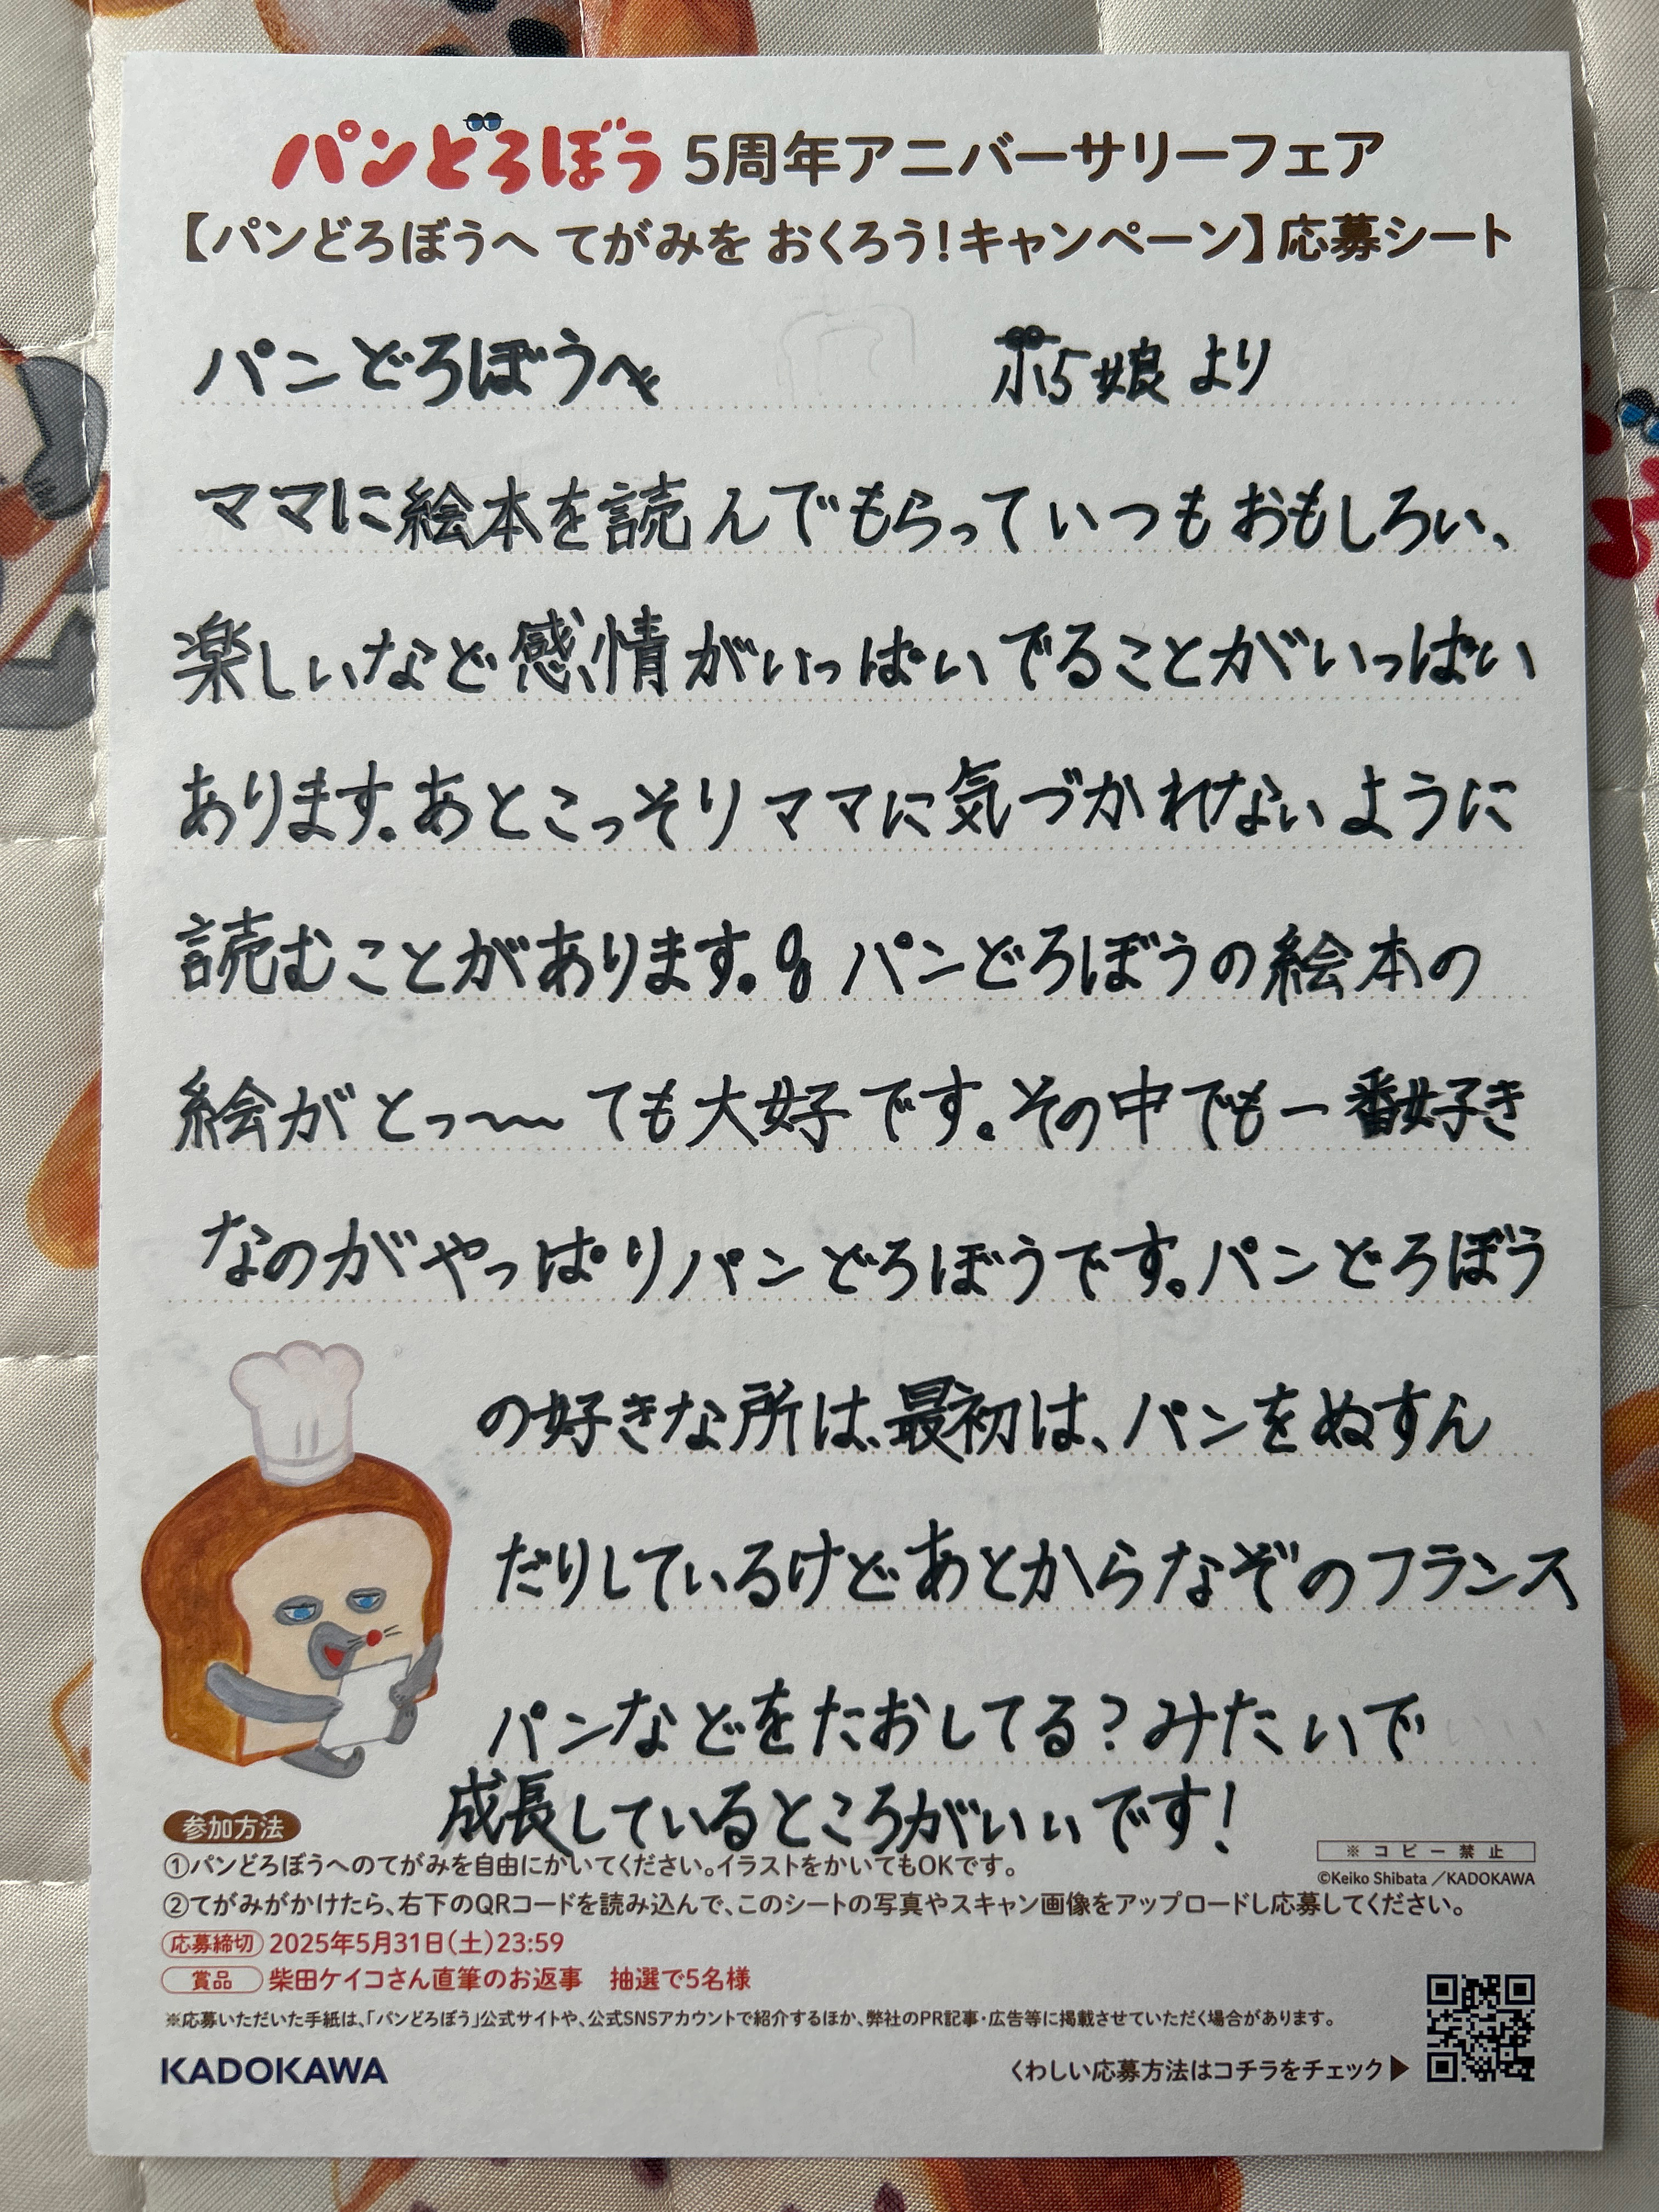 パンどろぼう 5周年アニバーサリーフェア
【パンどろぼうへ てがみを おくろう！キャンペーン】応募シート
パンどろぼうへ 娘より
ママに絵本を読んでもらっていつもおもしろい、
楽しいなど感情がいっぱいでることがいっぱい
あります。あとこっそりママに気づかれないように
読むことがあります。 パンどろぼうの絵本の
絵がとっ〜〜ても大好です。その中でも一番好き
なのがやっぱりパンどろぼうです。パンどろぼう
の好きな所は、最初は、パンをぬすん
だりしているけどあとからなぞのフランス
パンなどをたおしてる？みたいで
成長しているところがいいです！
参加方法
①パンどろぼうへのてがみを自由にかいてください。イラストをかいてもOKです。
※コピー禁止
©Keiko Shibata／KADOKAWA
②てがみがかけたら、右下のQRコードを読み込んで、このシートの写真やスキャン画像をアップロードし応募してください。
応募締切 2025年5月31日(土)23:59
賞品 柴田ケイコさん直筆のお返事 抽選で5名様
※応募いただいた手紙は、「パンどろぼう」公式サイトや、公式SNSアカウントで紹介するほか、弊社のPR記事・広告等に掲載させていただく場合があります。
KADOKAWA
くわしい応募方法はコチラをチェック▶